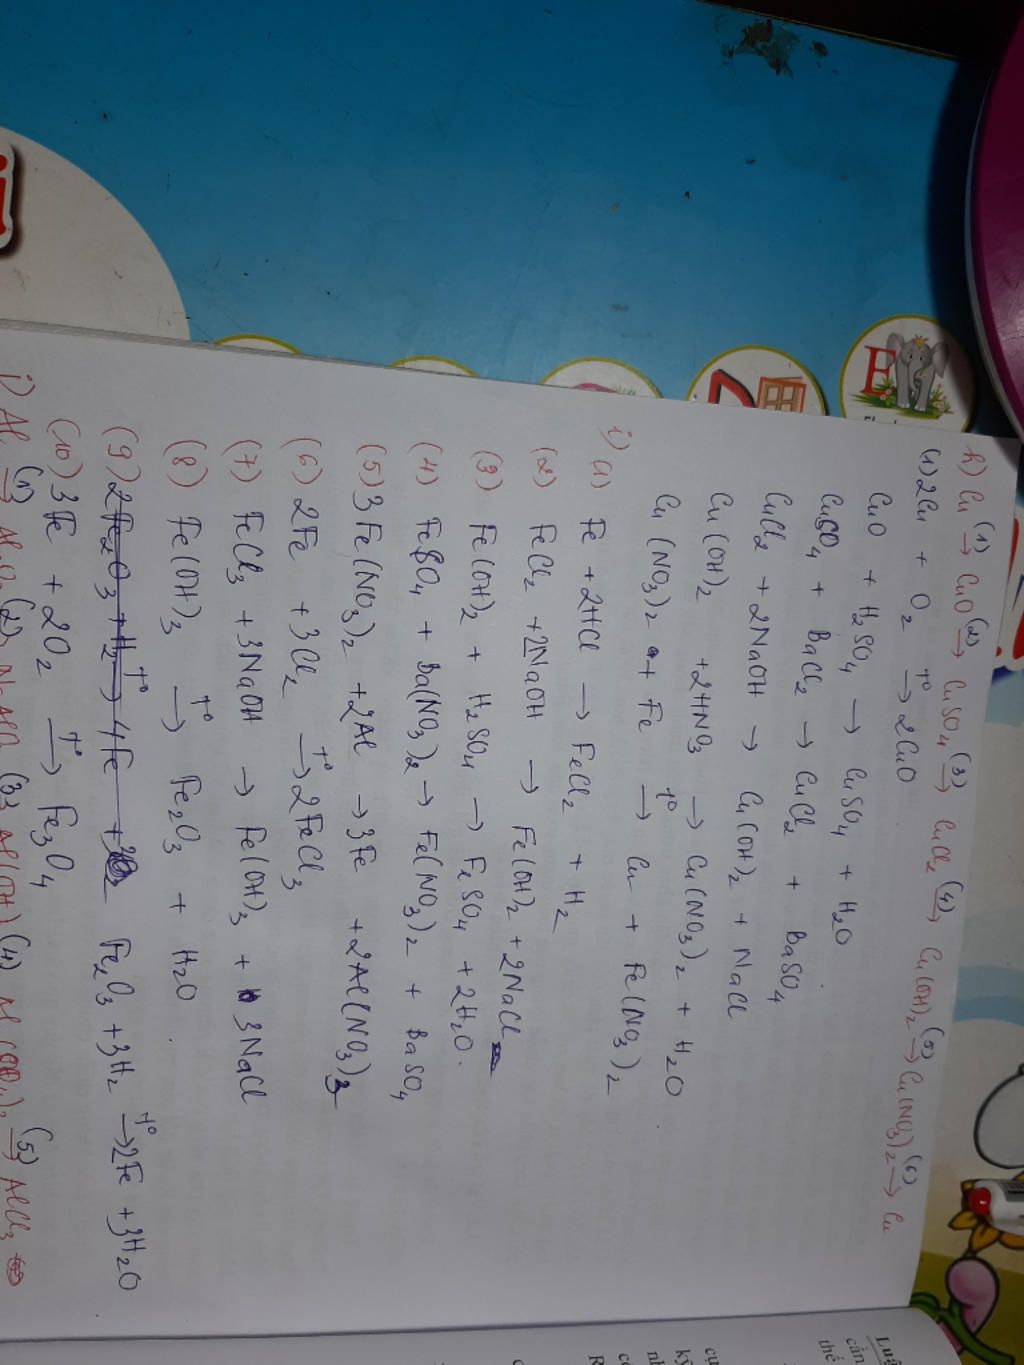 h) Cu (1)→ CuO (2)→ CuSO4 (3)→ CuCl2 (4)→ Cu(OH)2 (5)→ Cu(NO3)2 (6)→ Cu
(1) 2Cu + O2 t°→ 2CuO
CuO + H2SO4 → CuSO4 + H2O
CuSO4 + BaCl2 → CuCl2 + BaSO4
CuCl2 + 2NaOH → Cu(OH)2 + NaCl
Cu(OH)2 + 2HNO3 → Cu(NO3)2 + H2O
Cu(NO3)2 + Fe t°→ Cu + Fe(NO3)2
i) (1) Fe + 2HCl → FeCl2 + H2
(2) FeCl2 + 2NaOH → Fe(OH)2 + 2NaCl
(3) Fe(OH)2 + H2SO4 → FeSO4 + 2H2O.
(4) FeSO4 + Ba(NO3)2 → Fe(NO3)2 + BaSO4
(5) 3Fe(NO3)2 + 2Al → 3Fe + 2Al(NO3)3
(6) 2Fe + 3Cl2 t°→ 2FeCl3
(7) FeCl3 + 3NaOH → Fe(OH)3 + 3NaCl
(8) Fe(OH)3 t°→ Fe2O3 + H2O
(9) 2Fe2O3 + H2 t°→ 4Fe + Fe2O3 + 3H2 t°→ 2Fe + 3H2O
(10) 3Fe + 2O2 t°→ Fe3O4
(1) (2) (3) Al(OH) (4) (5)→ AlCl3
E
Luậ
cần
thể